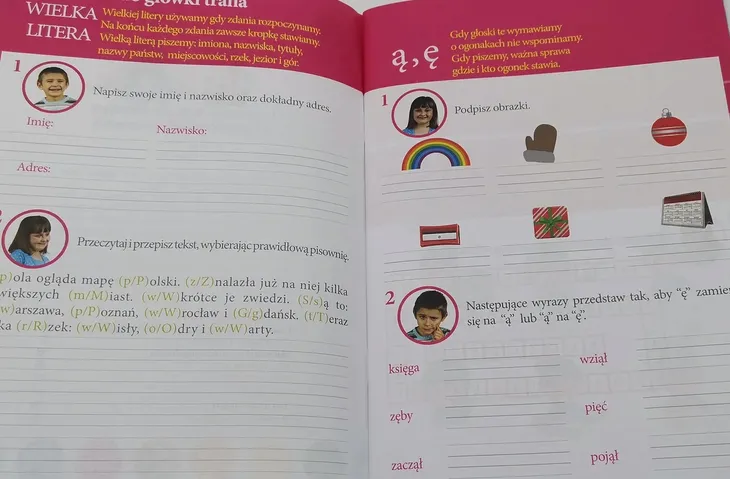 główki trafia
WIELKA
LITERA
Wielkiej litery używamy gdy zdania rozpoczynamy.
Na końcu każdego zdania zawsze kropkę stawiamy.
Wielką literą piszemy: imiona, nazwiska, tytuły,
nazwy państw, miejscowości, rzek, jezior i gór.
1
Napisz swoje imię i nazwisko oraz dokładny adres.
Imię:
Nazwisko:
Adres:
Przeczytaj i przepisz tekst, wybierając prawidłową pisownię.
p)ola ogląda mapę (p/P)olski. (z/Z)nalazła już na niej kilka
większych (m/M)iast. (w/W)krótce je zwiedzi. (S/s)ą to:
w)arszawa, (p/P)oznań, (w/W)rocław i (G/g)dańsk. (t/T)eraz
ka (r/R)zek: (w/W)isły, (o/O)dry i (w/W)arty.
ą, ę
Gdy głoski te wymawiamy
o ogonakach nie wspominamy.
Gdy piszemy, ważna sprawa
gdzie i kto ogonek stawia.
1
Podpisz obrazki.
2
Następujące wyrazy przedstaw tak, aby “ę” zamie
się na “ą” lub “ą” na “ę”.
księga
wziął
zęby
pięć
zaczął
pojął